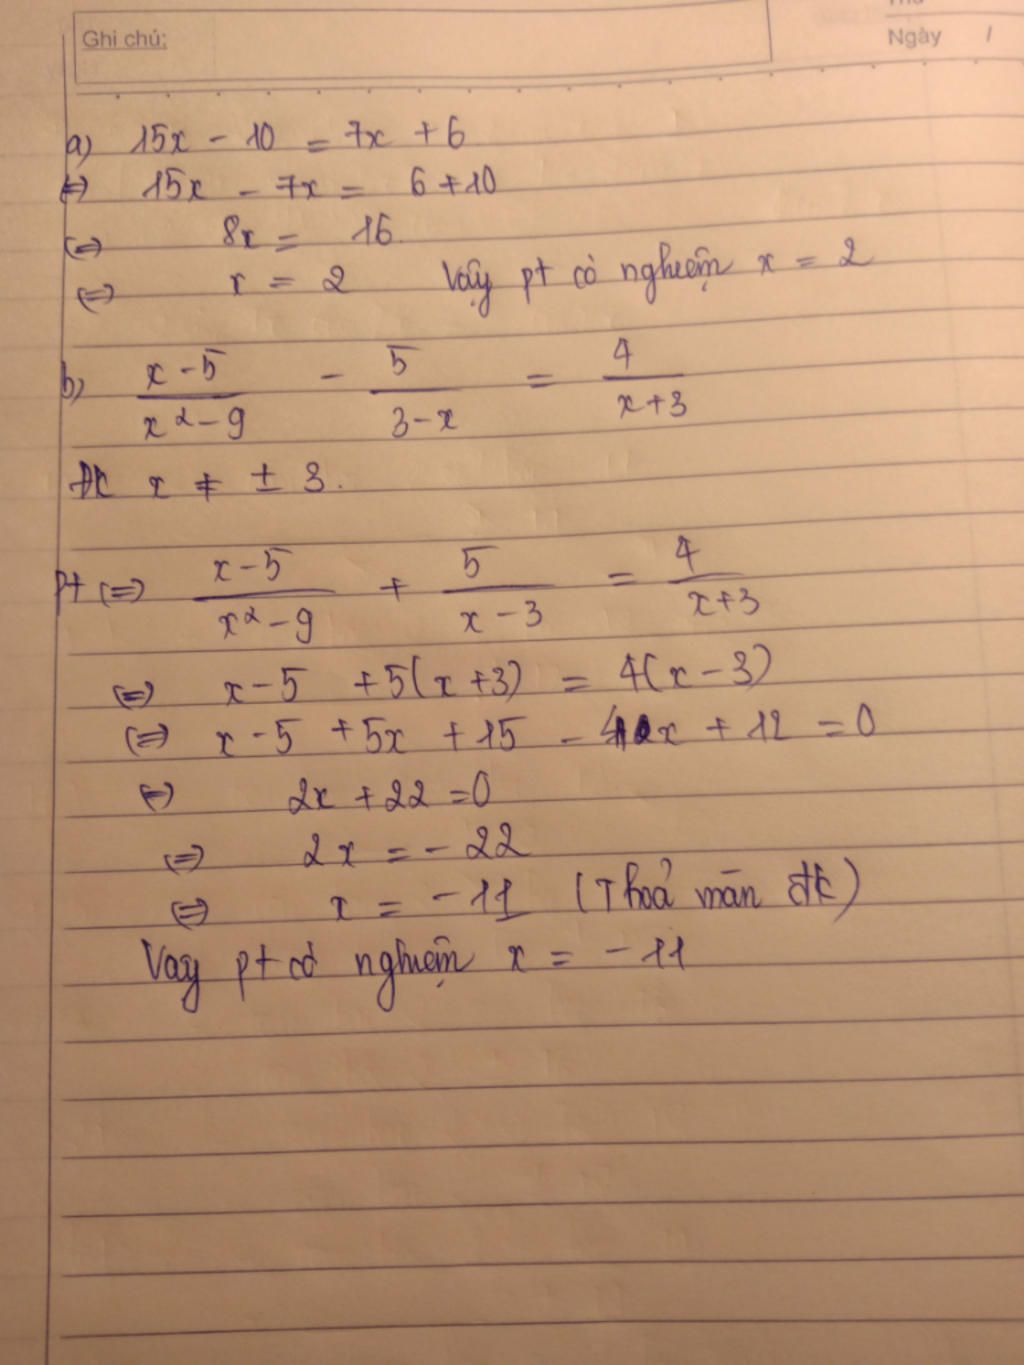 Ghi chú:
Ngày /
a) 15x - 10 = 7x + 6
⇔ 15x - 7x = 6 + 10
⇔ 8x = 16
⇔ x = 2 Vậy pt có nghiệm x = 2
b) (x - 5)/(x² - 9) - 5/(3 - x) = 4/(x + 3)
ĐK x ≠ ± 3.
pt ⇔ (x - 5)/(x² - 9) + 5/(x - 3) = 4/(x + 3)
⇔ x - 5 + 5(x + 3) = 4(x - 3)
⇔ x - 5 + 5x + 15 - 4x + 12 = 0
⇔ 2x + 22 = 0
⇔ 2x = - 22
⇔ x = - 11 (Thoả mãn đk)
Vậy pt có nghiệm x = - 11